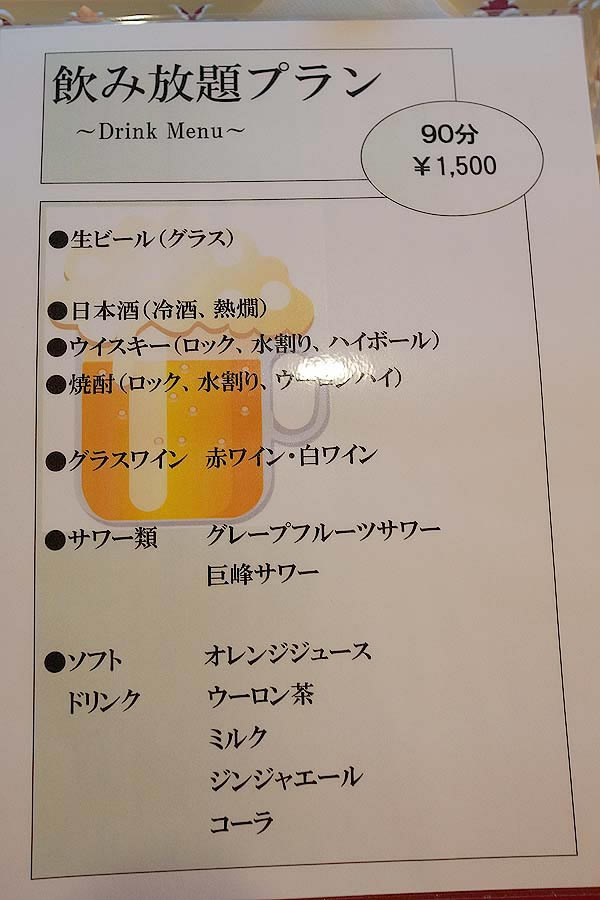 飲み放題プラン
～Drink Menu～
90分
￥1,500
●生ビール（グラス）
●日本酒（冷酒、熱燗）
●ウイスキー（ロック、水割り、ハイボール）
●焼酎（ロック、水割り、ウーロンハイ）
●グラスワイン 赤ワイン・白ワイン
●サワー類 グレープフルーツサワー
巨峰サワー
●ソフト オレンジジュース
ドリンク ウーロン茶
ミルク
ジンジャエール
コーラ